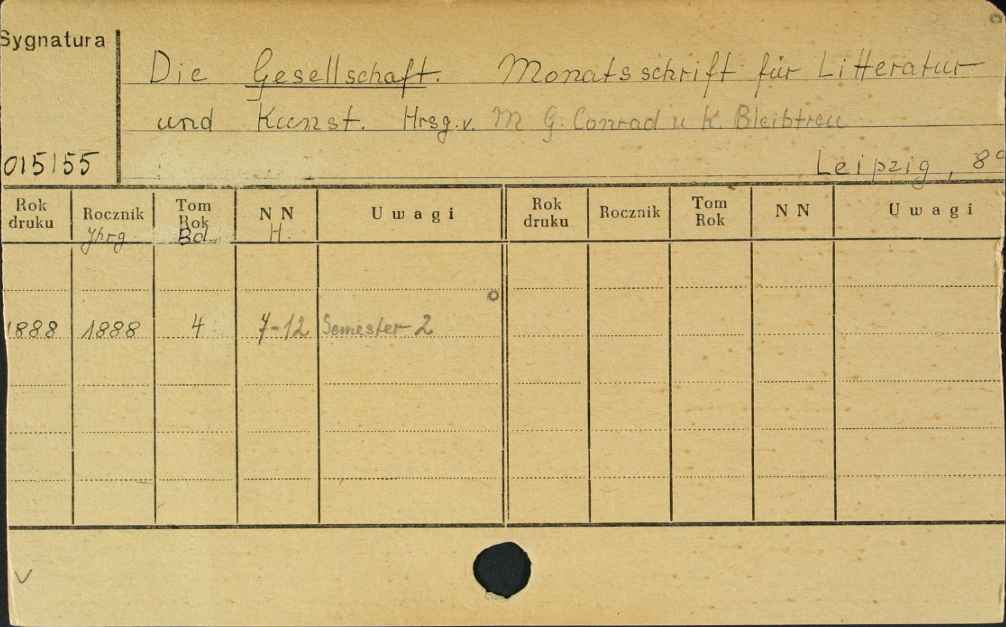 Sygnatura
Die Gesellschaft. Monatsschrift für Litteratur
und Kunst. Hrsg. v. M G. Conrad u K. Bleibtreu
015155 Leipzig, 8°
Rok druku Rocznik Tom Rok N N Uwagi Rok druku Rocznik Tom Rok N N Uwagi
Jhrg. Bd. H.
1888 1888 4 7-12 Semester 2
V